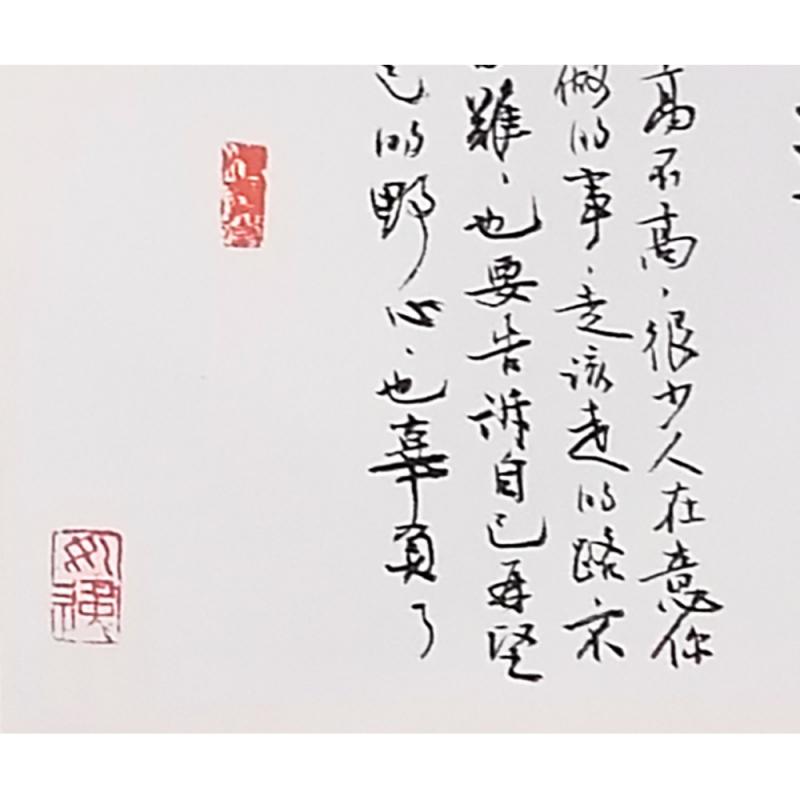 高不高，很少人在意你
做的事，走该走的路，不
難，也要告诉自己再坚
己的野心，也辜负了